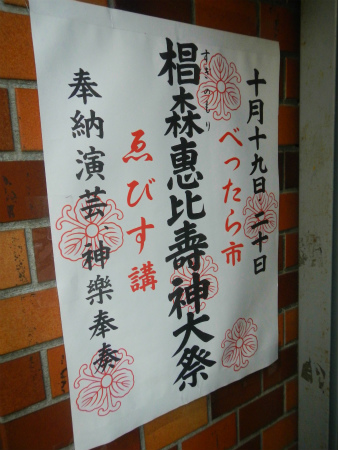 十月十九日、二十日
べったら市
椙森惠比壽神大祭
すぎのもり
ゑびす講
奉納演芸、神樂奉奏